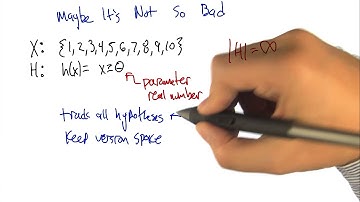 Maybe It's Not So Bad
X: {1,2,3,4,5,6,7,8,9,10}
H: h(x) = x≥θ
|H|=∞
parameter
real number
track all hypotheses
keep version space